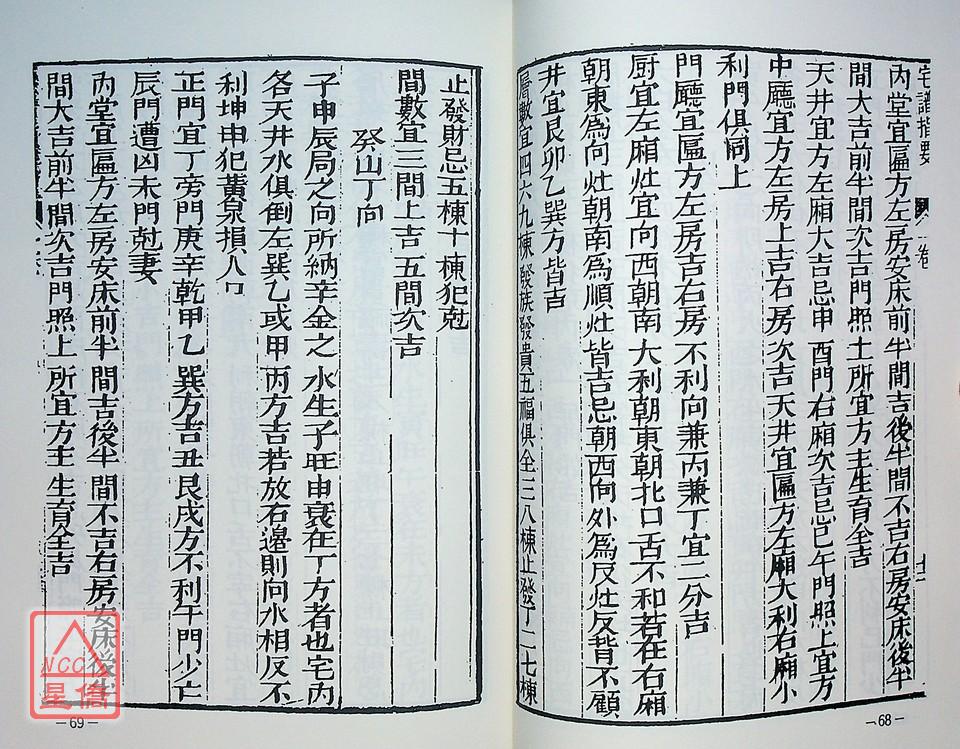 宅譜指要 卷一
內堂宜匾方左房安床前半間吉後半間不吉右房安床後半
間大吉前半間次吉門照上所宜方主生育全吉
天井宜方左廂大吉忌申酉門右廂次吉忌巳午門照上宜方
中廳宜方左房上吉右房次吉天井宜匾方左廂大利右廂小
利門俱同上
門廳宜匾方左房吉右房不利向兼丙兼丁宜二分吉
厨宜左廂宜向西朝南大利朝東朝北口舌不和若在右廂
朝東為向灶朝南為順灶皆吉忌朝西向外為反灶反背不顧
井宜艮卯乙巽方皆吉
層數宜四六九棟發族發貴五福俱全三八棟止發丁二七棟
－68－
止發財忌五棟十棟犯尅
間數宜三間上吉五間次吉
癸山丁向
子申辰局之向所納辛金之水生子旺申衰在丁方者也宅內
各天井水俱倒左巽乙或甲丙方吉若放右邊則向水相反不
利坤申犯黃泉損人口
正門宜丁旁門庚辛乾甲乙巽方吉丑艮戌方不利午門少亡
辰門遭凶未門尅妻
內堂宜匾方左房安床前半間吉後半間不吉右房安床後半
間大吉前半間次吉門照上所宜方主生育全吉
NCC
星僑
－69－